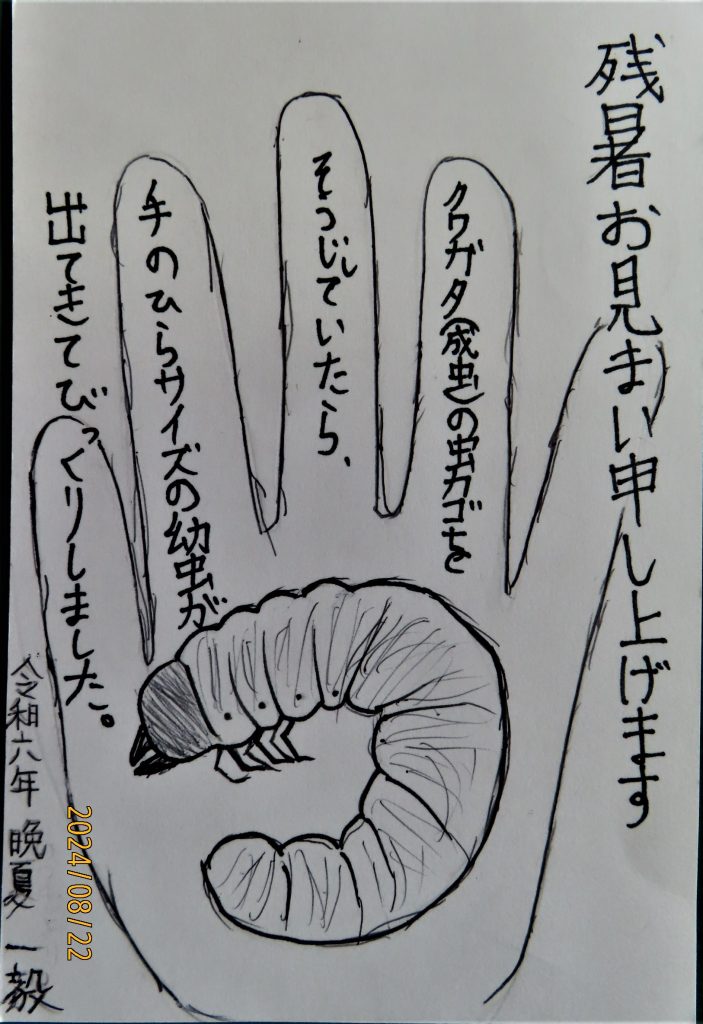 残暑お見まい申し上げます
クワガタ(成虫)の虫カゴを
そうじしていたら、
手のひらサイズの幼虫が
出てきてびっくりしました。
令和六年 晩夏 一毅
2024/08/22